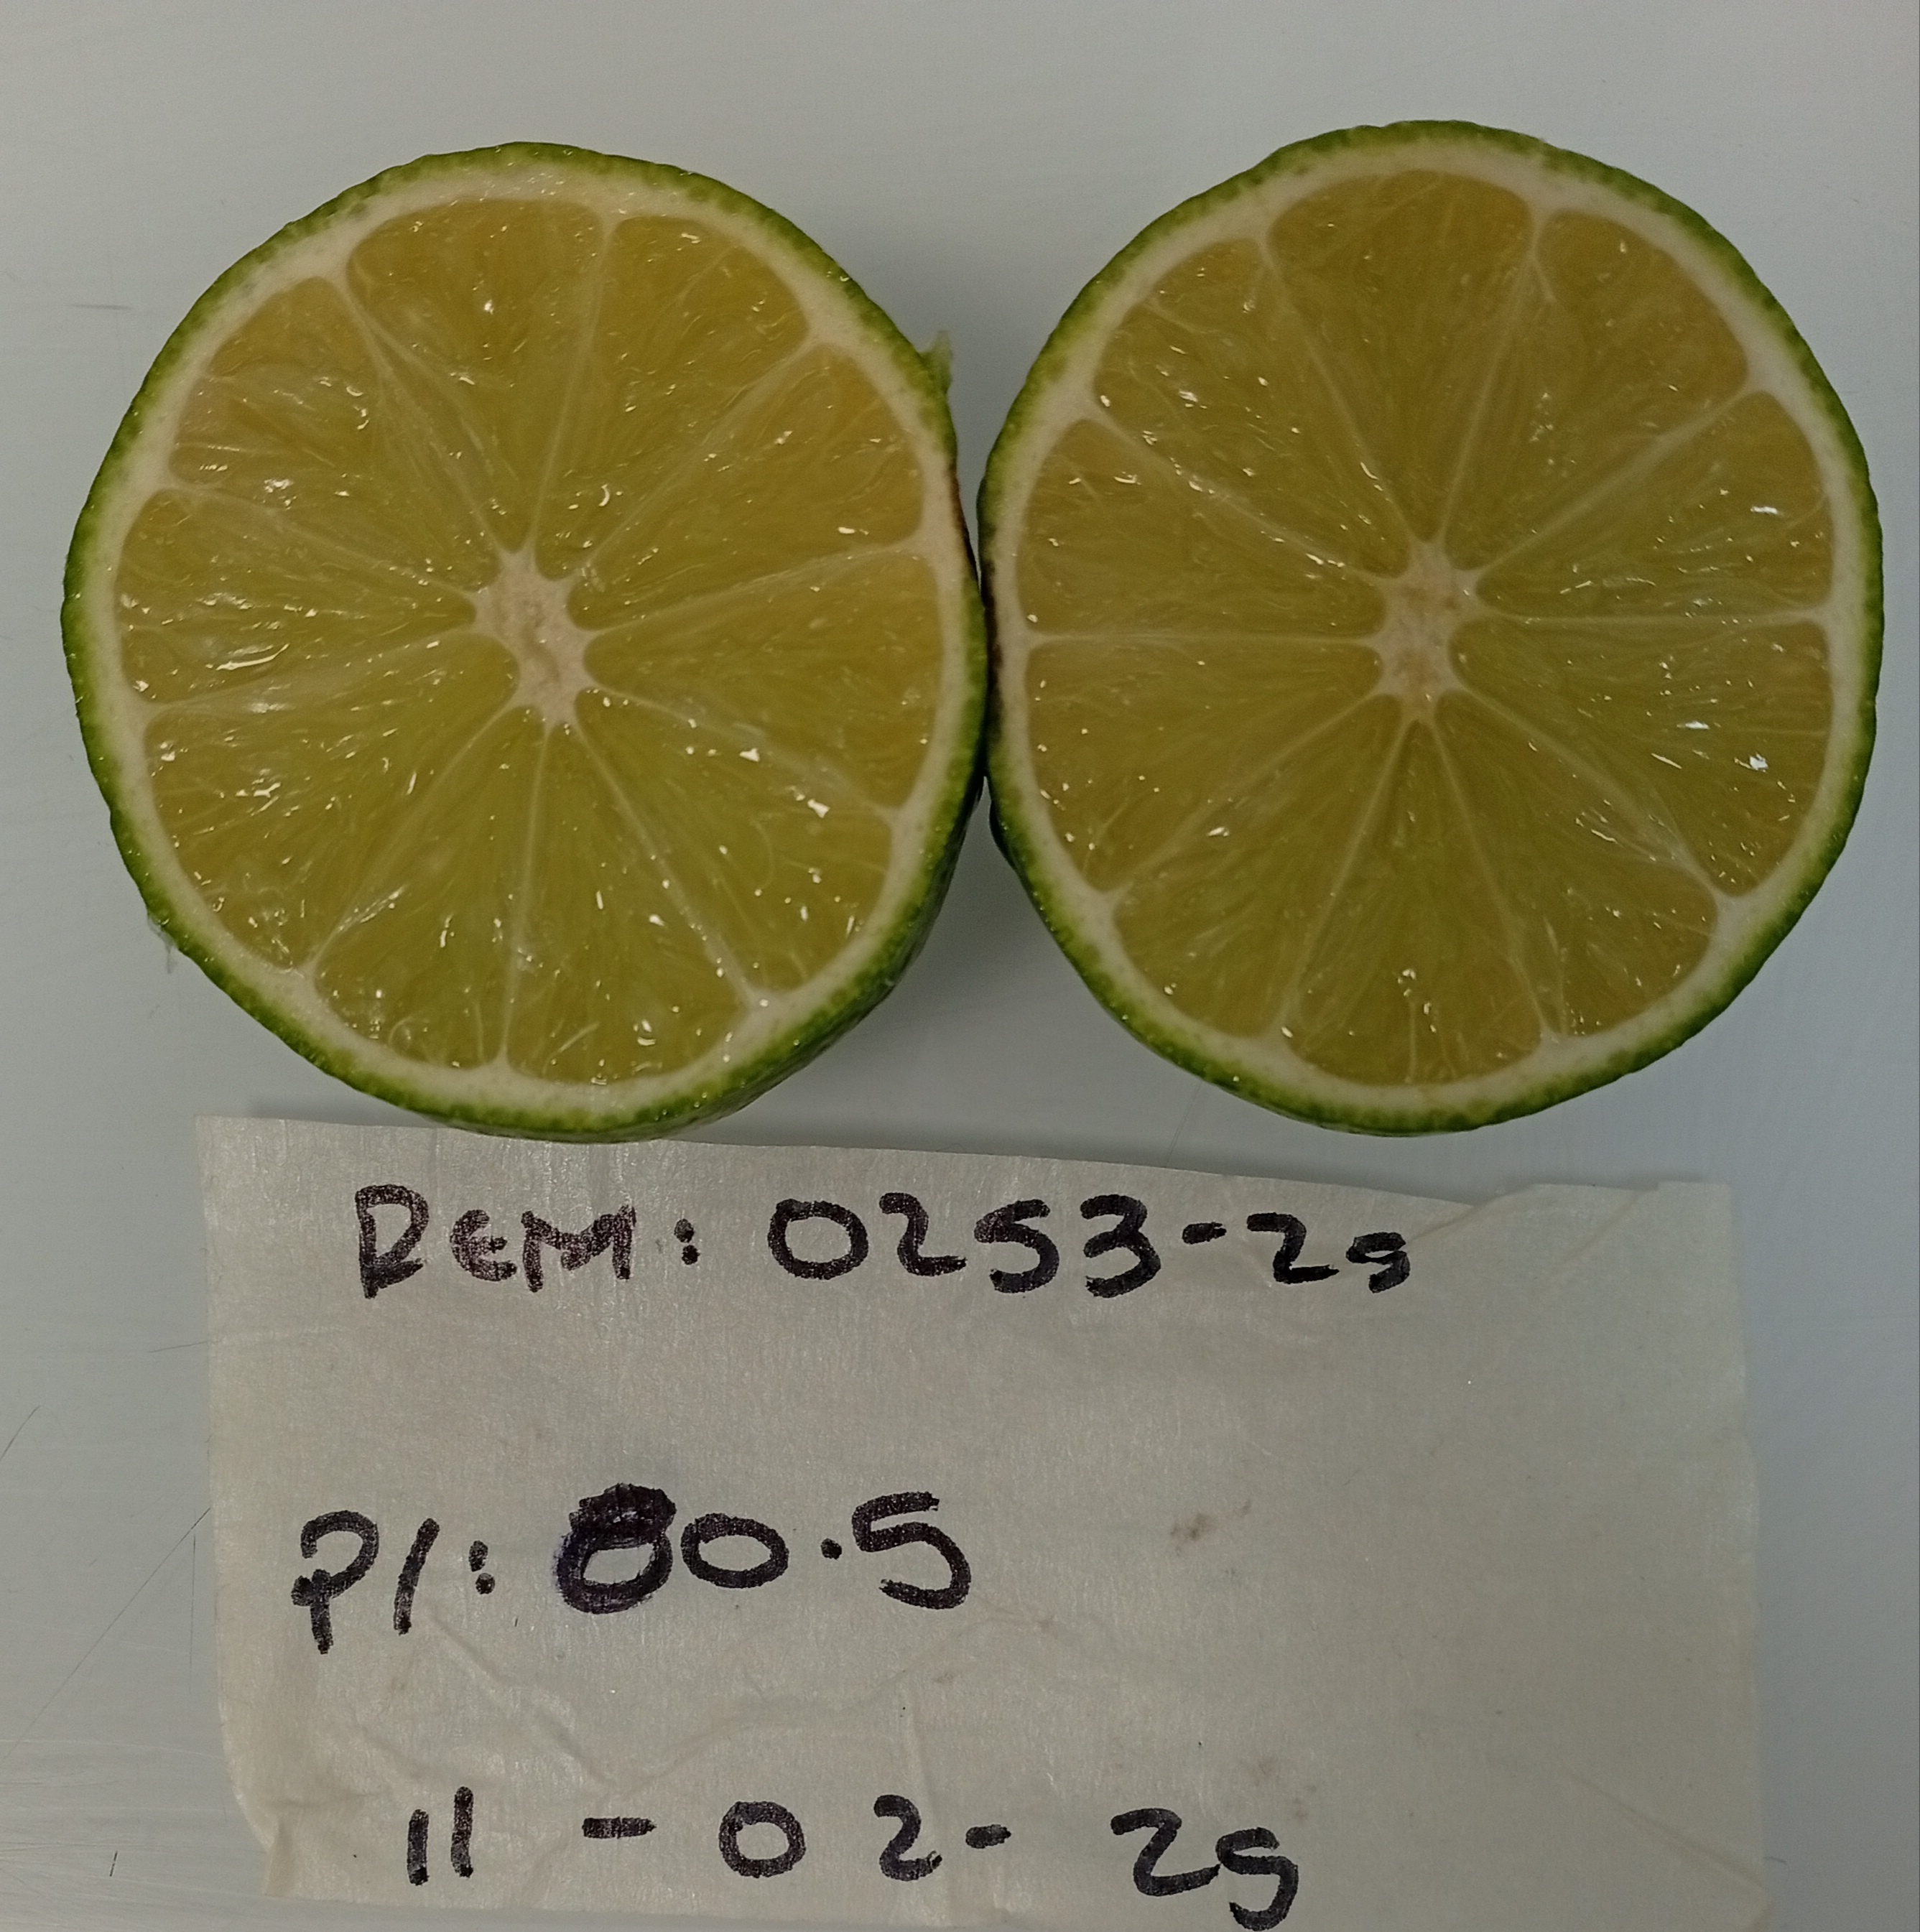 REM: 0253-25
P/: 80.5
11-02-25